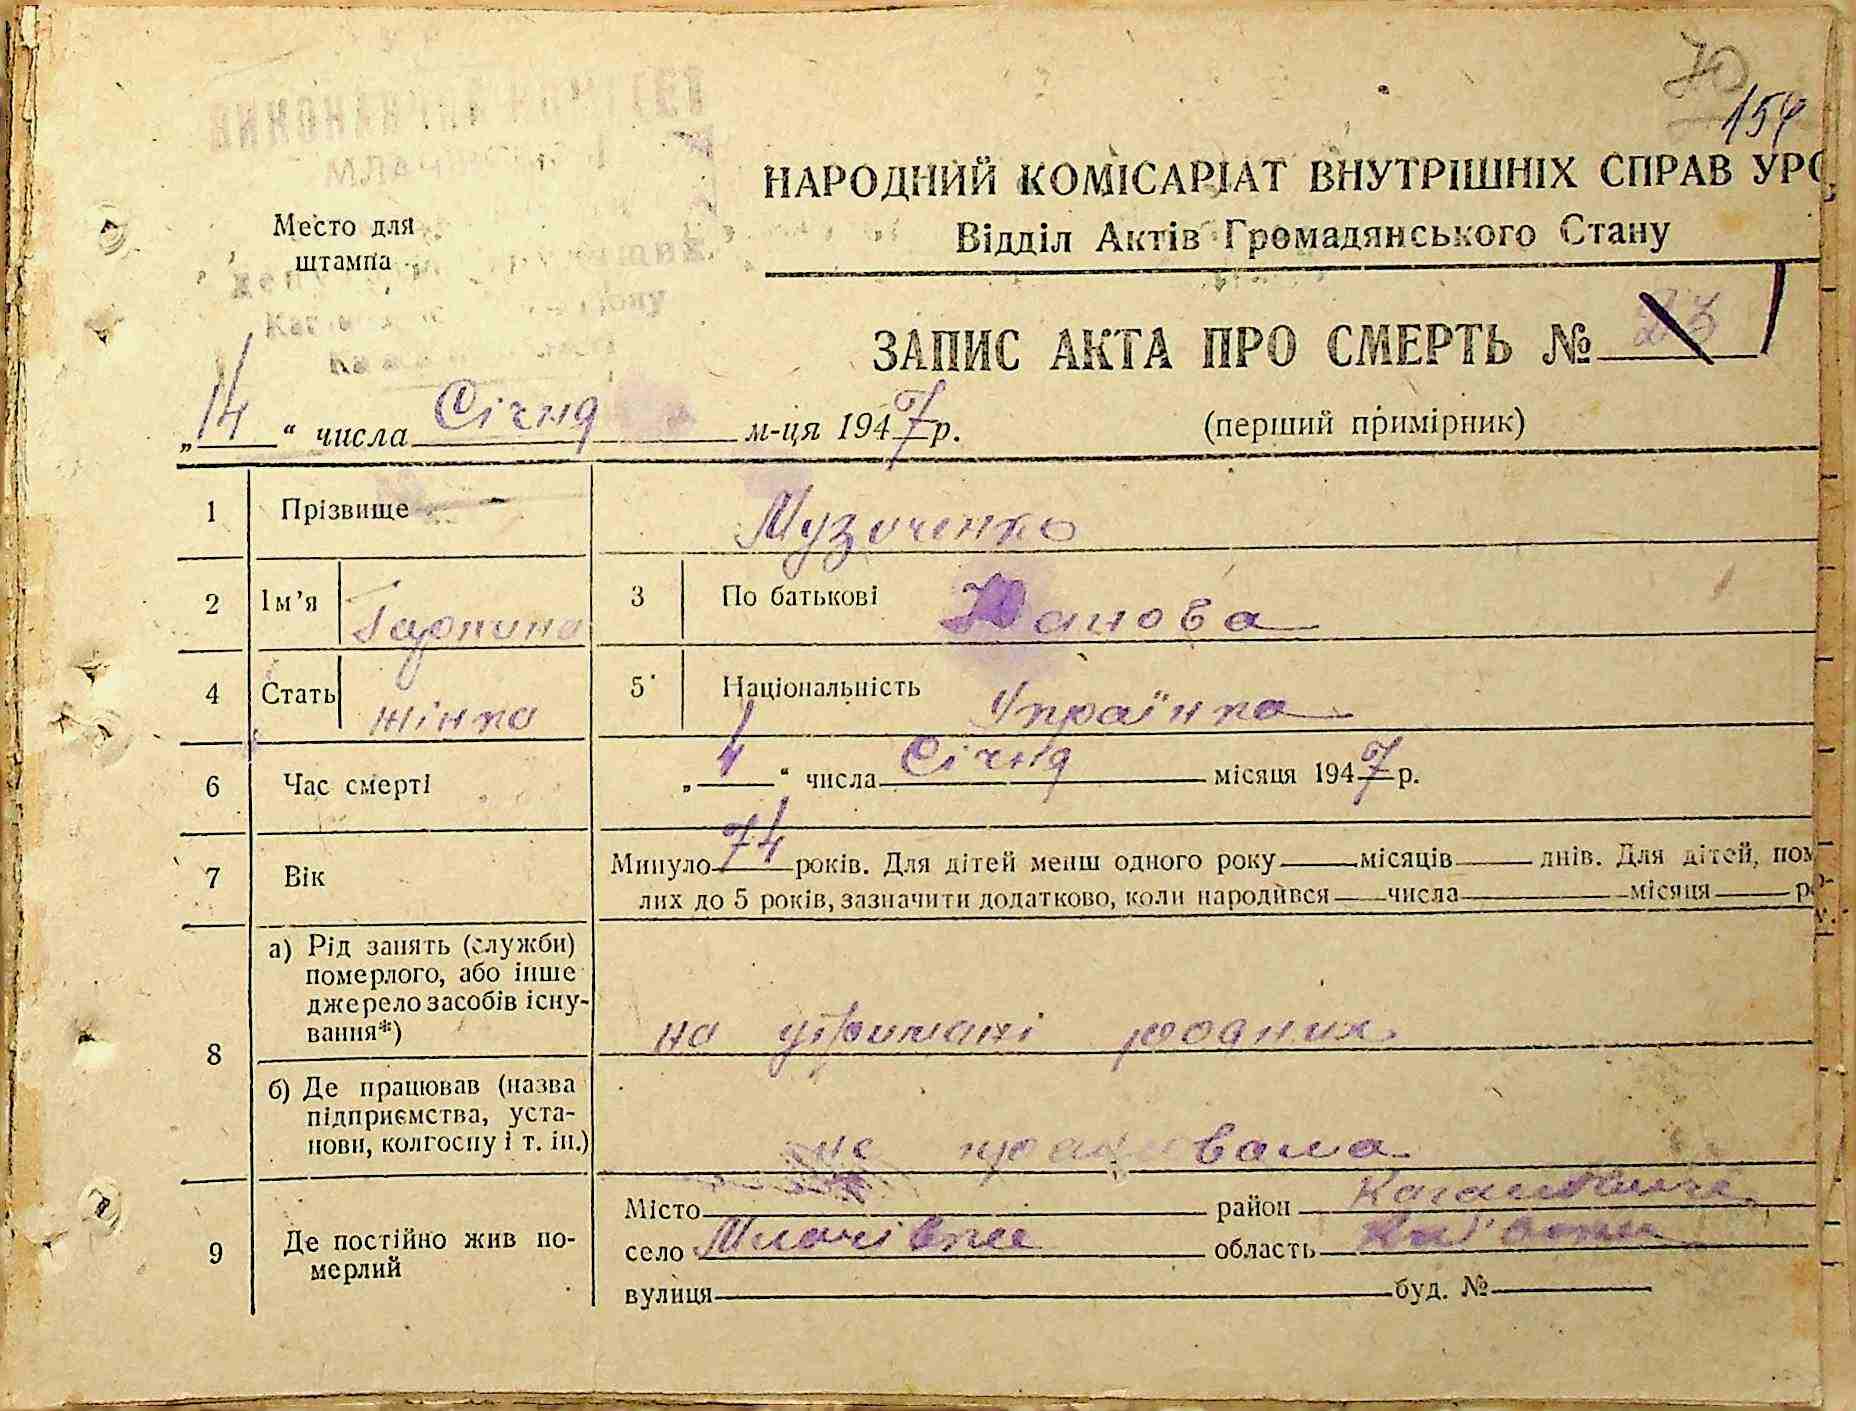 70
154
ВИКОНАВЧИЙ КОМІТЕТ
Место для
штампа
НАРОДНИЙ КОМІСАРІАТ ВНУТРІШНІХ СПРАВ УРС
Відділ Актів Громадянського Стану
ЗАПИС АКТА ПРО СМЕРТЬ № 23 1
„14“ числа Січня м-ця 1947 р.
(перший примірник)
1 Прізвище Музиченко
2 Ім’я Гарпина 3 По батькові Юхимова
4 Стать жінка 5 Національність Українка
6 Час смерті „4“ числа Січня місяця 1947 р.
7 Вік Минуло 74 років. Для дітей менш одного року місяців днів. Для дітей, пом
лих до 5 років, зазначити додатково, коли народився числа місяця ро
8 а) Рід занять (служби)
померлого, або інше
джерело засобів існу-
вання*) на утримані родних
б) Де працював (назва
підприємства, уста-
нови, колгоспу і т. ін.) не працювала
9 Де постійно жив по-
мерлий
Місто район Кагановичі
село Млачівки область Київськ
вулиця буд. №